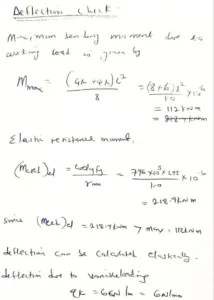 Deflection check:
Maximum bending moment due to
working load is given by
Mmax = (gk + qk) L²/8 = (8+6)
= 112 kNm
Elastic resistance moment,
= 218.9 kNm
since = 218.9 kNm > Mmax = 112 kNm
deflection can be calculated elastically.
deflection due to variable loading
qk = 6 kN/m = 6 N/mm